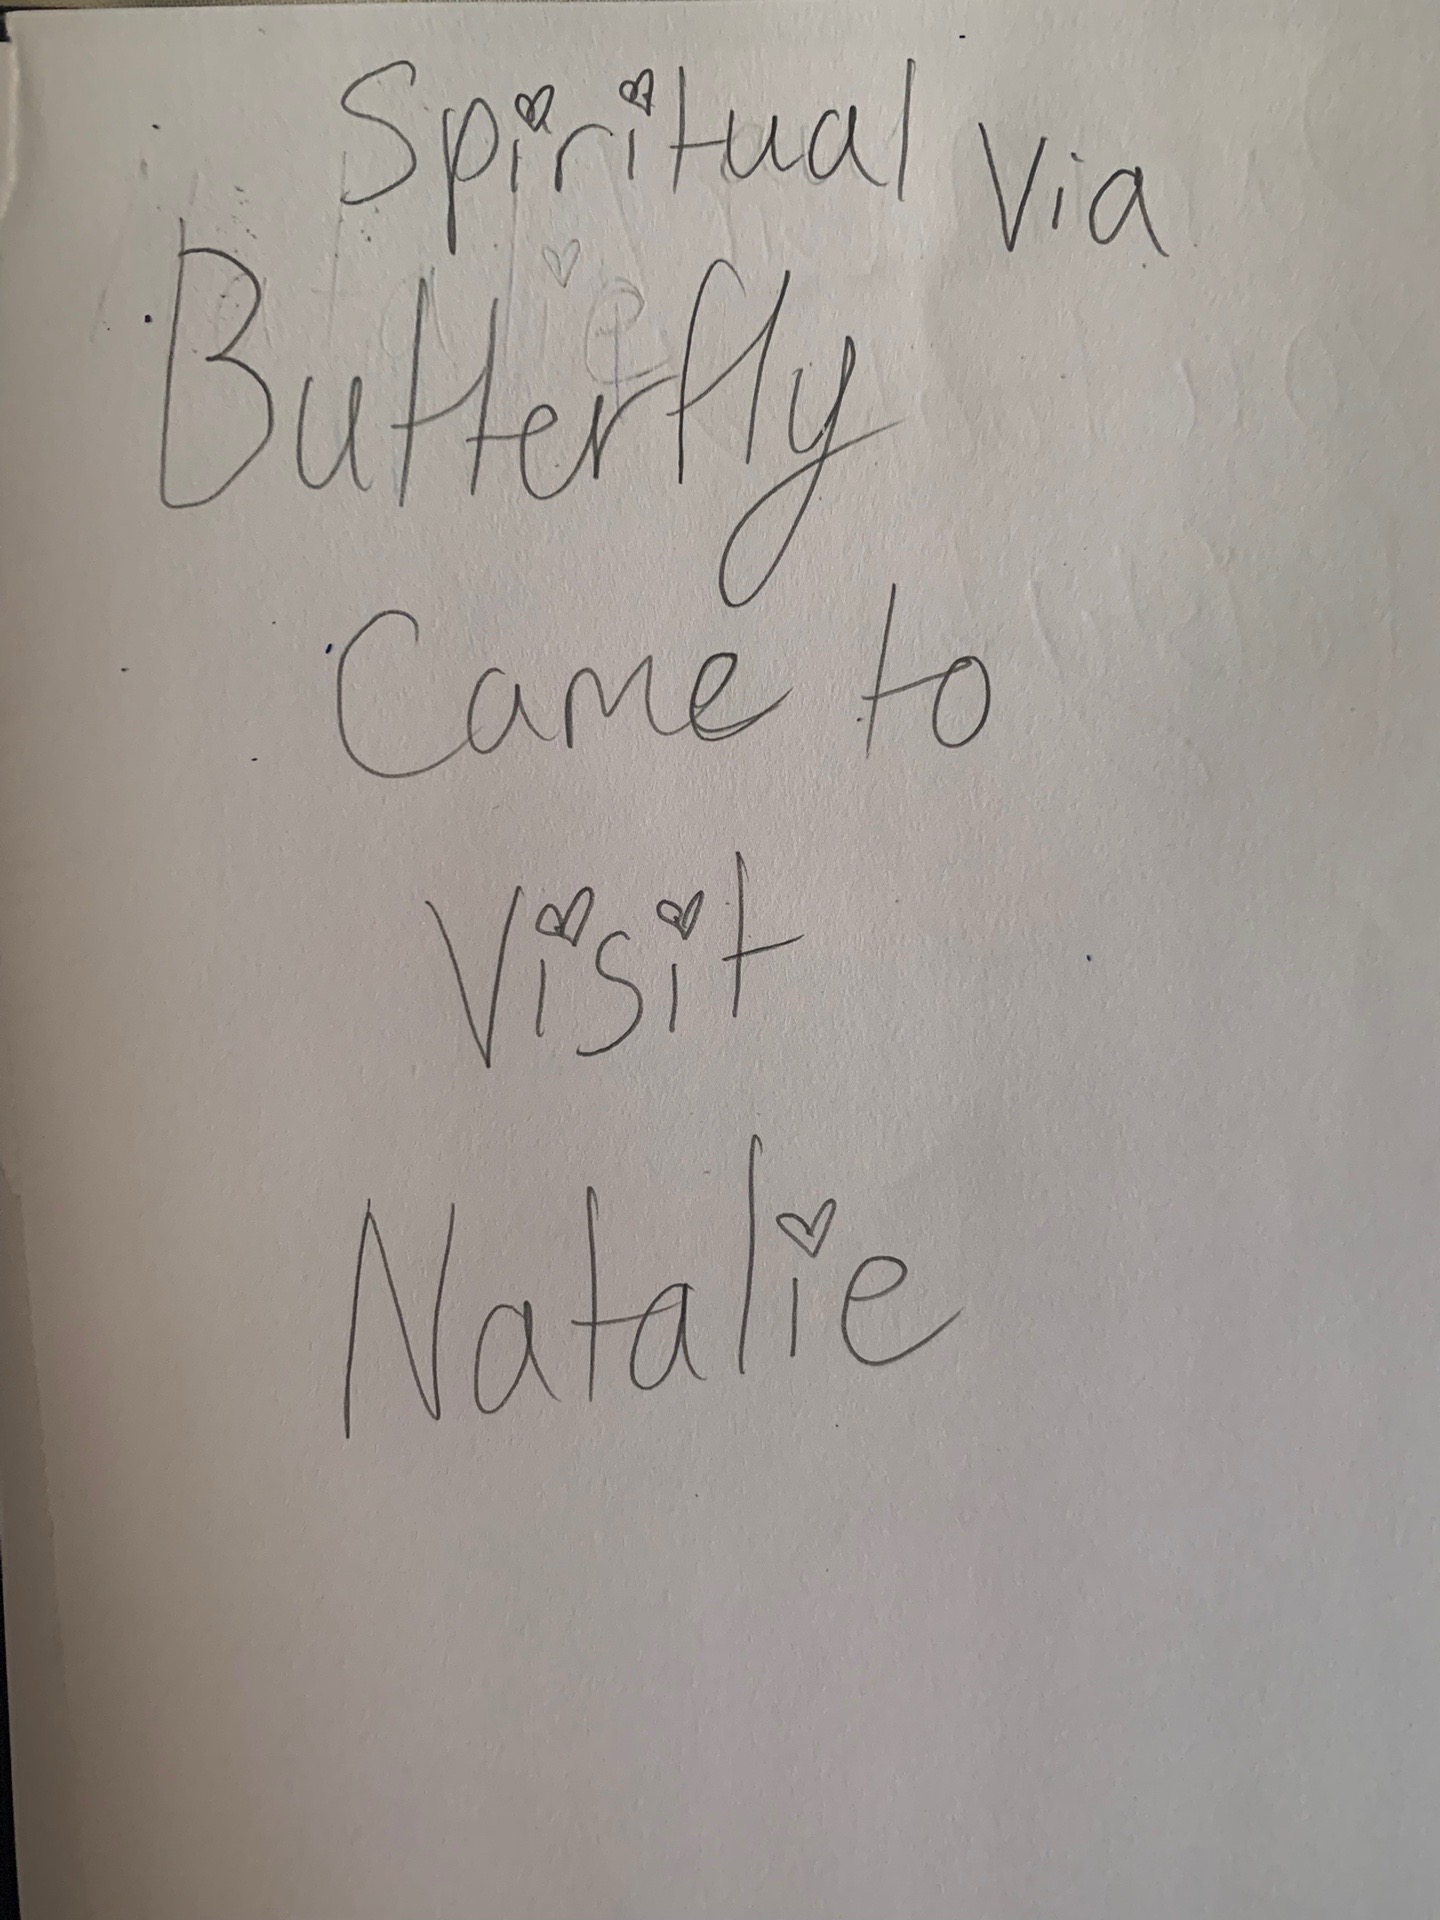 Spiritual Via
Butterfly
Came to
Visit
Natalie